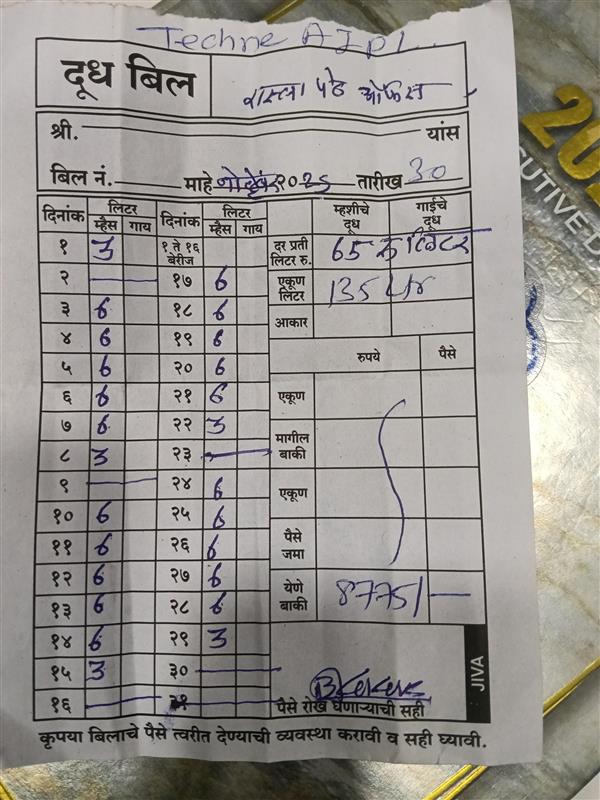 Techne AJPL
दूध बिल
रास्ता पेठ ऑफिस
श्री. यांस
बिल नं. माहे नोव्हेंबर २०२5 तारीख 30
दिनांक लिटर दिनांक लिटर म्हशीचे दूध गाईचे दूध
म्हैस गाय म्हैस गाय
१ 3 १ ते १६ बेरीज दर प्रति लिटर रु. 65 रु लिटर
२ — १७ 6 एकूण लिटर 135 Ltr
३ 6 १८ 6 आकार
४ 6 १९ 6 रुपये पैसे
५ 6 २० 6
६ 6 २१ 6 एकूण
७ 6 २२ 3 मागील बाकी
८ 3 २३ —
९ — २४ 6 एकूण
१० 6 २५ 6
११ 6 २६ 6 पैसे जमा
१२ 6 २७ 6 येणे बाकी 8775/—
१३ 6 २८ 6
१४ 6 २९ 3
१५ 3 ३० —
१६ — ३१ — पैसे रोख घेणाऱ्याची सही
JIVA
कृपया बिलाचे पैसे त्वरीत देण्याची व्यवस्था करावी व सही घ्यावी.